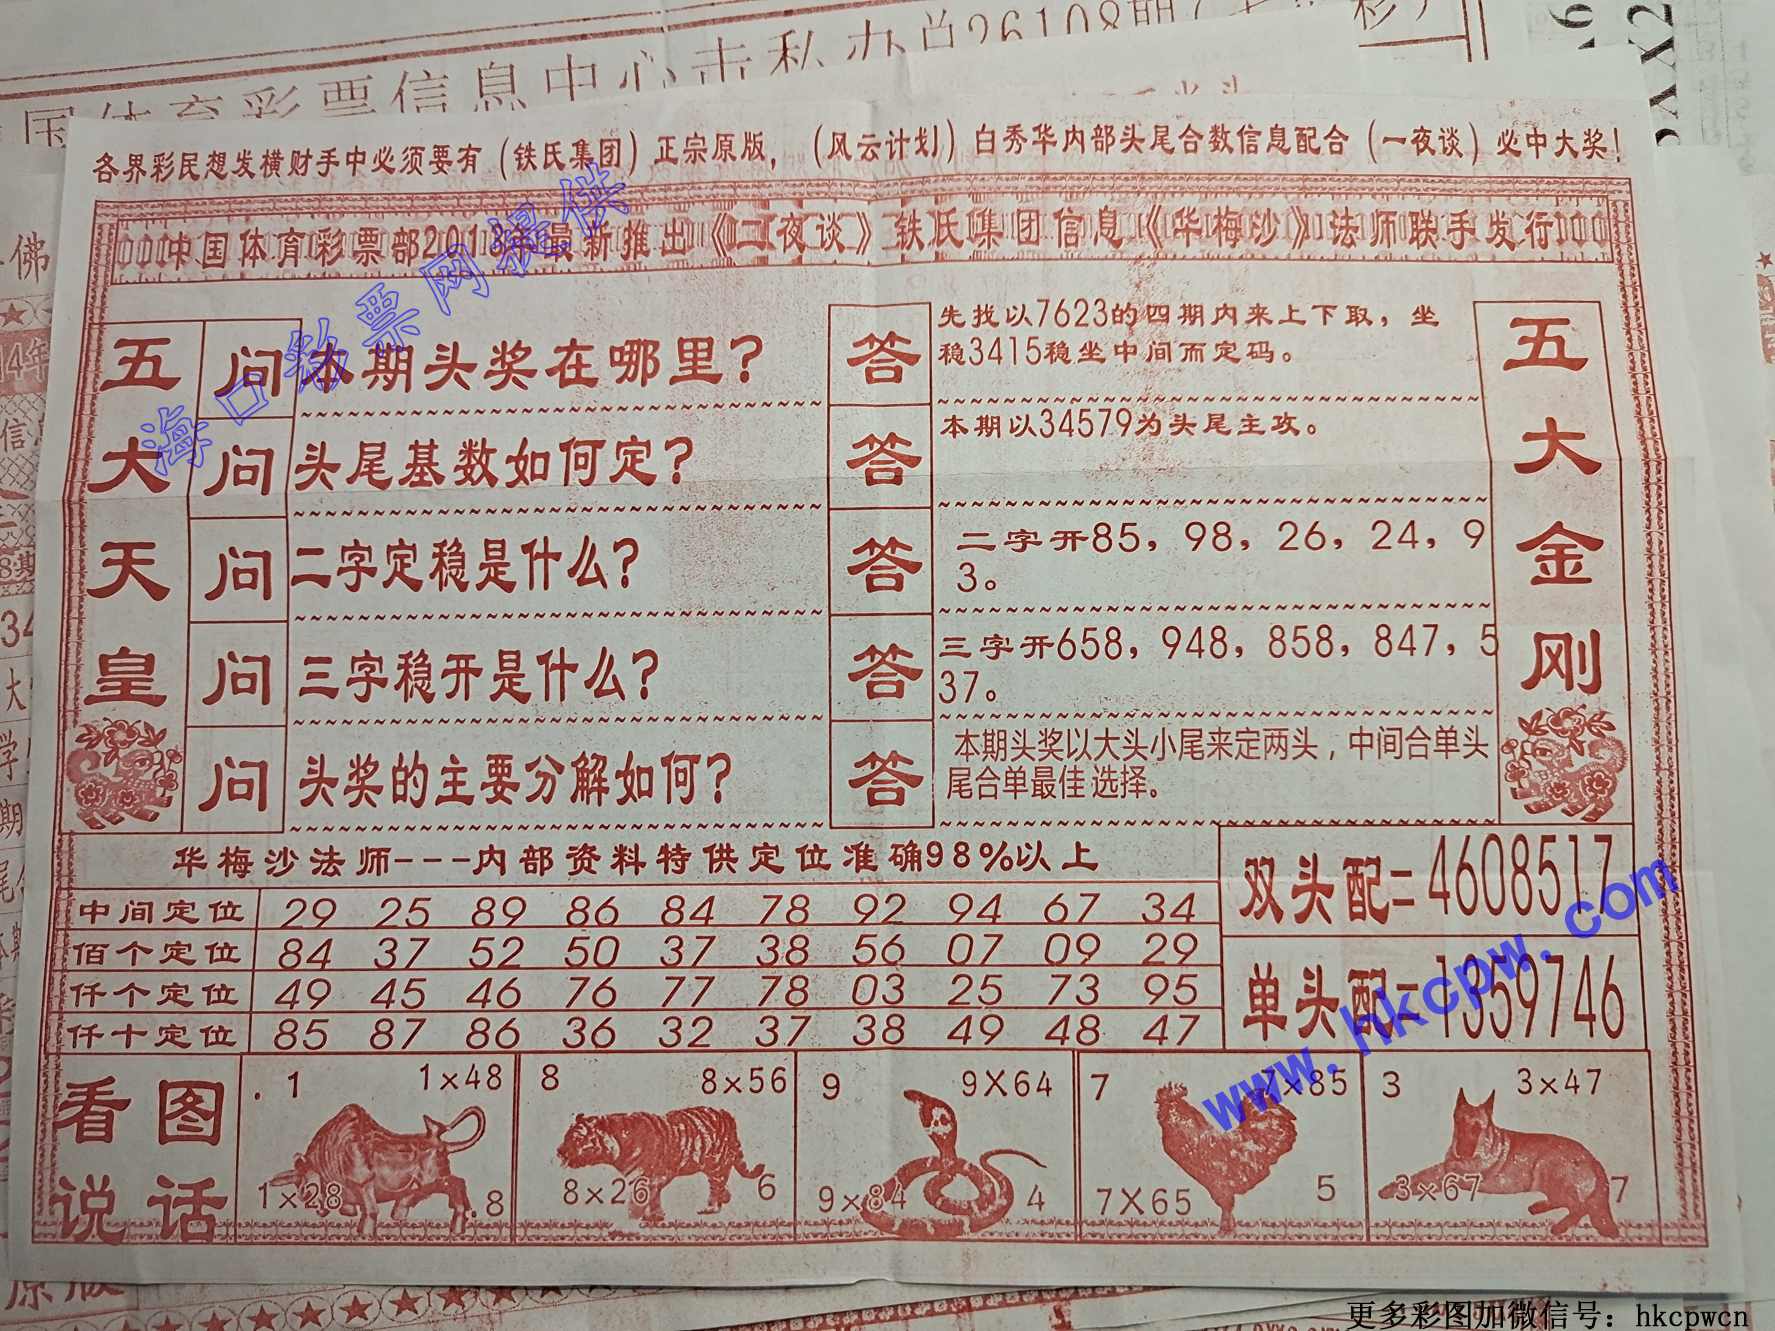 国体育彩票信息中心
各界彩民想发横财手中必须要有（铁氏集团）正宗原版，（风云计划）白秀华内部头尾合数信息配合（一夜谈）必中大奖！
中国体育彩票部2013年最新推出《二夜谈》铁氏集团信息《华梅沙》法师联手发行
海口彩票网提供
五大天皇
问 本期头奖在哪里？
答 先找以7623的四期内来上下取，坐
稳3415稳坐中间而定码。
问 头尾基数如何定？
答 本期以34579为头尾主攻。
问 二字定稳是什么？
答 二字开85，98，26，24，9
3。
问 三字稳开是什么？
答 三字开658，948，858，847，5
37。
问 头奖的主要分解如何？
答 本期头奖以大头小尾来定两头，中间合单头
尾合单最佳 选择。
五大金刚
华梅沙法师---内部资料特供定位准确98%以上
中间定位 29 25 89 86 84 78 92 94 67 34
佰个定位 84 37 52 50 37 38 56 07 09 29
仟个定位 49 45 46 76 77 78 03 25 73 95
仟十定位 85 87 86 36 32 37 38 49 48 47
双头配=4608517
单头配=1359746
www.hkcpw.com
看图
说话
.1 1×48
1×28 .8
8 8×56
8×26 6
9 9X64
9×84 4
7 7×85
7X65 5
3 3×47
3×67 7
更多彩图加微信号：hkcpwcn